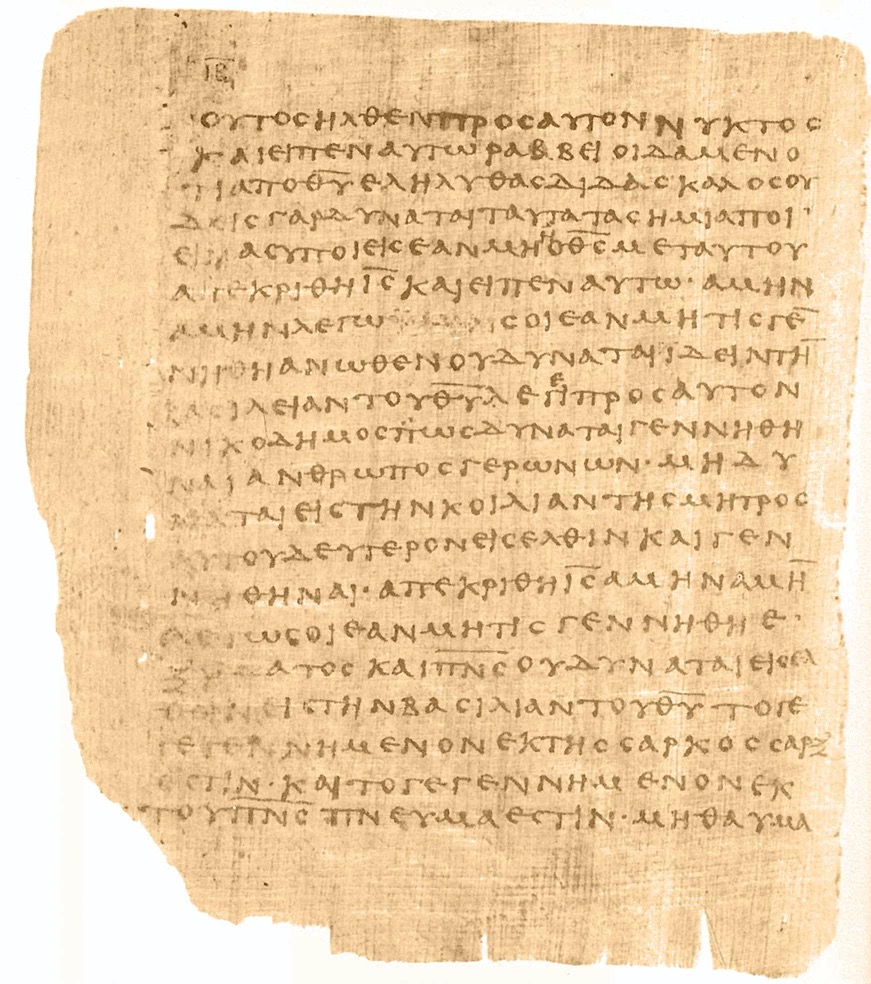 ΙΒ̅
ΟΥΤΟϹΗΛΘΕΝΠΡΟϹΑΥΤΟΝΝΥΚΤΟϹ
ΚΑΙΕΙΠΕΝΑΥΤΩΡΑΒΒΕΙΟΙΔΑΜΕΝΟ
ΤΙΑΠΟΘ̅Υ̅ΕΛΗΛΥΘΑϹΔΙΔΑϹΚΑΛΟϹΟΥ
ΔΕΙϹΓΑΡΔΥΝΑΤΑΙΤΑΥΤΑΤΑϹΗΜΙΑΠΟΙ
ΕΙΝΑϹΥΠΟΙΕΙϹΕΑΝΜΗΗΟΘ̅Ϲ̅ΜΕΤΑΥΤΟΥ
ΑΠΕΚΡΙΘΗΙ̅Ϲ̅ΚΑΙΕΙΠΕΝΑΥΤΩ·ΑΜΗΝ
ΑΜΗΝΛΕΓΩϹΟΙΕΑΝΜΗΤΙϹΓΕ̅
ΝΗΘΗΑΝΩΘΕΝΟΥΔΥΝΑΤΑΙΙΔΕΙΝΤΗ̅
ΒΑϹΙΛΕΙΑΝΤΟΥΘ̅Υ̅ΛΕΓΕΙΠΡΟϹΑΥΤΟΝ
ΝΙΚΟΔΗΜΟϹΠΩϹΔΥΝΑΤΑΙΓΕΝΝΗΘΗ
ΝΑΙΑΝΘΡΩΠΟϹΓΕΡΩΝΩΝ·ΜΗΔΥ
ΝΑΤΑΙΕΙϹΤΗΝΚΟΙΛΙΑΝΤΗϹΜΗΤΡΟϹ
ΑΥΤΟΥΔΕΥΤΕΡΟΝΕΙϹΕΛΘΙΝΚΑΙΓΕΝ
ΝΗΘΗΝΑΙ·ΑΠΕΚΡΙΘΗΙ̅Ϲ̅ΑΜΗΝΑΜΗ̅
ΛΕΓΩϹΟΙΕΑΝΜΗΤΙϹΓΕΝΝΗΘΗΕ
ΞΥΔΑΤΟϹΚΑΙΠ̅Ν̅Ϲ̅ΟΥΔΥΝΑΤΑΙΕΙϹΕΛ
ΘΕΙΝΕΙϹΤΗΝΒΑϹΙΛΙΑΝΤΟΥΘ̅Υ̅ΤΟΓΕ
ΓΕΓΕΝΝΗΜΕΝΟΝΕΚΤΗϹϹΑΡΚΟϹϹΑΡΞ
ΕϹΤΙΝ·ΚΑΙΤΟΓΕΓΕΝΝΗΜΕΝΟΝΕΚ
ΤΟΥΠ̅Ν̅Ϲ̅ΠΝΕΥΜΑΕϹΤΙΝ·ΜΗΘΑΥΜΑ